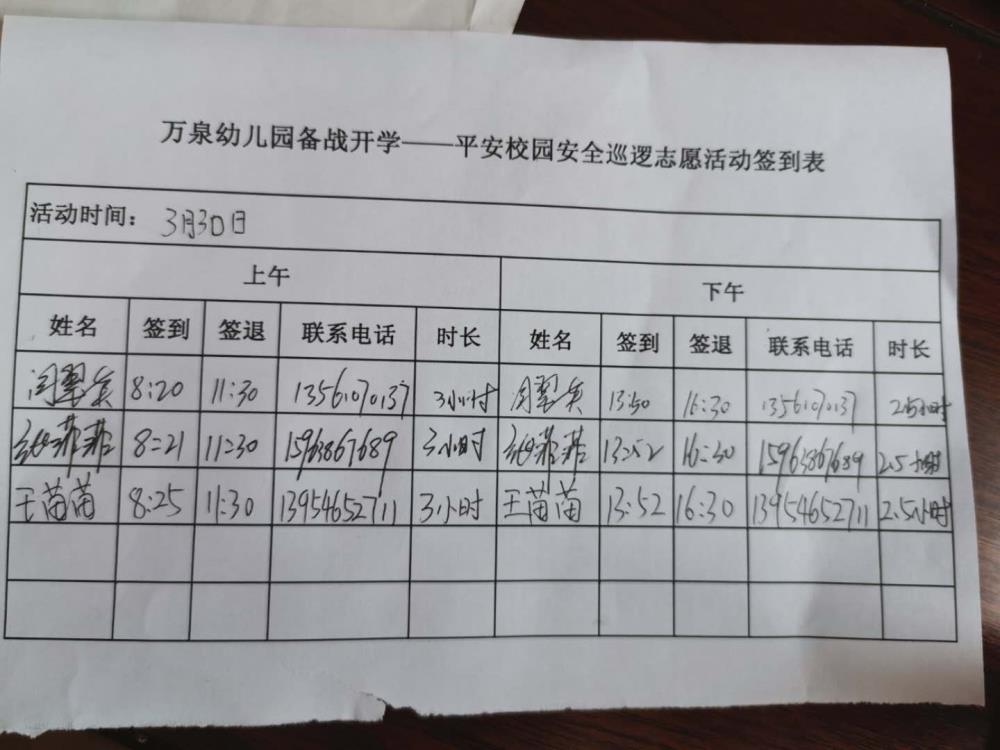 万泉幼儿园备战开学——平安校园安全巡逻志愿活动签到表
活动时间: 3月30日
上午 下午
姓名 签到 签退 联系电话 时长 姓名 签到 签退 联系电话 时长
8:20 11:30 13561070137 3小时 13:50 16:30 13561070137 2.5小时
张菲菲 8:21 11:30 15963867689 3小时 张菲菲 13:52 16:30 15963867689 2.5小时
王苗苗 8:25 11:30 13954652711 3小时 王苗苗 13:52 16:30 13954652711 2.5小时